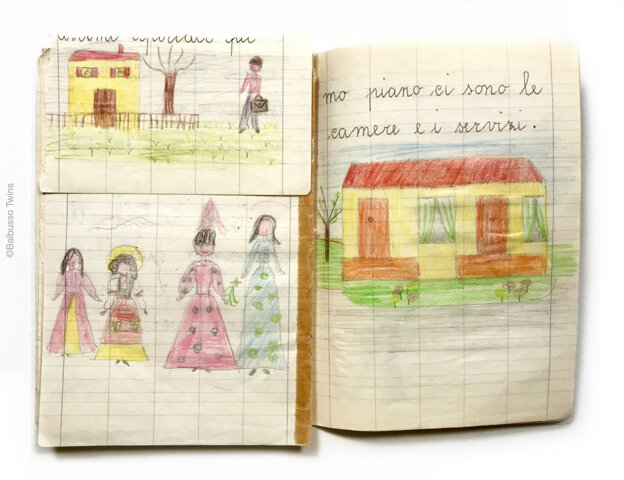 mo piano ci sono le
camere e i servizi.
©Balbusso Twins